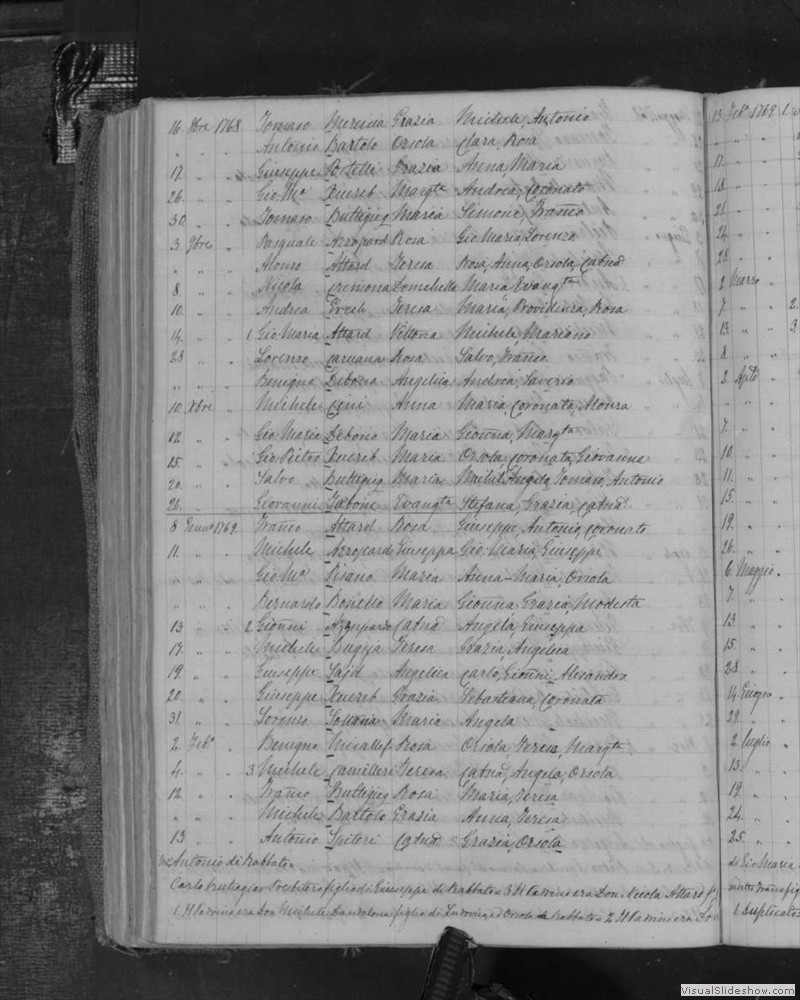 16. 8bre 1768 Tomaso Mercieca Grazia Michele, Antonio
" " " Antonio Bartolo Orsola Clara, Rosa
17. " " Giuseppe Portelli Grazia Anna, Maria
26. " " Gio Ma Xuereb Margta Andrea, Coronato
30. " " Tomaso Buttigieg Maria Simone, Franco
3. 9bre " Pasquale Azzopard Rosa Gio Maria Lorenzo
" " " Alonso Attard Teresa Rosa, Anna, Orsola, Catna
8. " " Nicola Cremona Domehella Maria Evangta
10. " " Andrea Teresa Maria, Providenza, Rosa
14. " " 1. Gio Maria Attard Vittoria Michele, Mariano
28 " " Lorenzo Caruana Rosa Salvo, Franco
" " " Benigno Debono Angelica Andrea, Saverio
10. Xbre " Michele Cini Anna Maria, Coronata, Alonza
12. " " Gio. Maria Debono Maria Gionna, Margta
15. " " Gio. Pietro Xuereb Maria Orsola, Coronata, Giovanna
20. " " Salvo Buttigieg Maria Michel'Angelo, Tomaso, Antonio
26. " " Giovanni Tabone Evangta Stefana, Grazia, Catna
8 Genno 1769. Franco Attard Rosa Giuseppe, Antonio, Coronato
11. " " Michele Azzopard Giuseppa Gio: Maria, Giuseppe
" " " Gio Ma Pisano Maria Anna-Maria, Orsola
" " " Bernardo Bonello Maria Gionna Grazia, Modesta
13 " " 2. Gionni Azzopardo Catna Angela, Giuseppa
17. " " Michele Bugeja Teresa Grazia, Angelica
19. " " Giuseppe Sajd Angelica Carlo, Gionni, Alesandro
20. " " Giuseppe Xuereb Grazia Sebasteana, Coronata
31. " " Lorenzo Maria Angela
2. Febo " Benigno Micallef Rosa Orsola, Teresa, Margta
4. " " 3. Michele Camilleri Teresa Catna, Angela, Orsola
12. " " Franco Buttigieg Rosa Maria, Teresa
" " " Michele Bartolo Grazia Anna, Teresa
13 " " Antonio Spiteri Catna Grazia, Orsola
Antonio di Rabbato
Carlo Presbitero figlio di Giuseppe di Rabbato 3. Il Padrino era Don Nicola Attard
1. Il Padrino era Don Michele figlio di ed Orsola di Rabbato 2. Il Padrino era
13 Febo 1769 1.
" " "
17. " "
18. " "
21. " "
24. " "
28. " "
2 Marzo "
7. " " 2.
13. " " 3
8. " "
3. Aple "
" " "
7. " "
10. "
11. "
15. "
19. "
26. "
6. Maggio "
7. "
13. "
15. "
28. "
14 Giugno "
29. "
2. Luglio "
13. "
19. "
24. "
25. "
di Gio Maria
1. Duplicato
VisualSlideshow.com